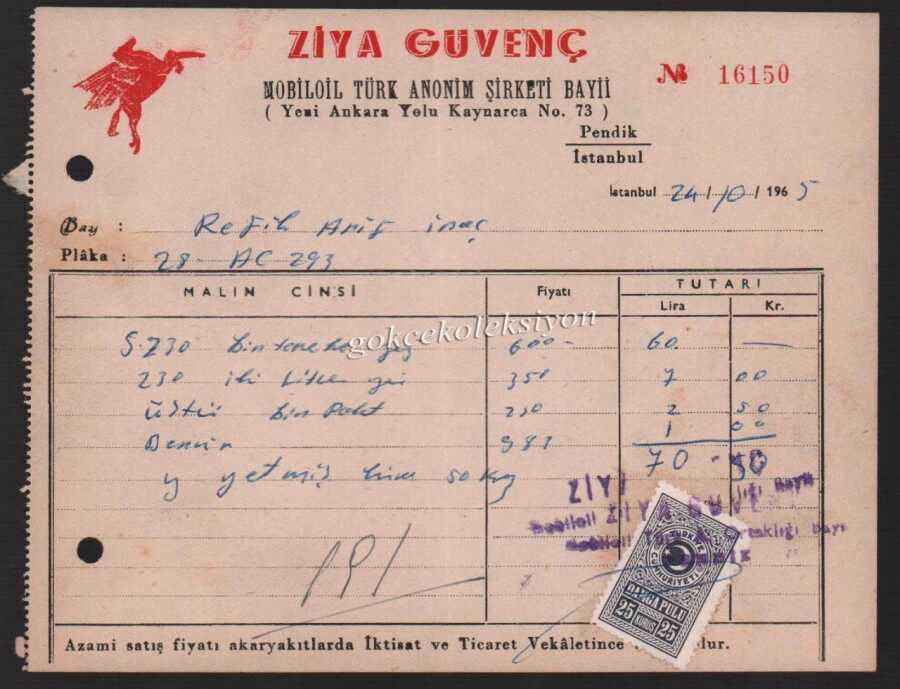 ZİYA GÜVENÇ
MOBİLOİL TÜRK ANONİM ŞİRKETİ BAYİİ
( Yeni Ankara Yolu Kaynarca No. 73 )
№ 16150
Pendik
İstanbul
İstanbul 24/10/1965
Bay : Refik Arif
Plâka : 28 AC 293
MALIN CİNSİ Fiyatı TUTARI
Lira Kr.
gokcekoleksiyon
bir teneke 600- 60 —
230 iki litre 350 7 00
Üstü bir 250 2 50
Benzin 1 00
70 50
yetmiş lira 50
191
ZİYA GÜVEN
Mobiloil
TÜRKİYE
CUMHURİYETİ
DAMGA PULU
25 KURUŞ 25
Azami satış fiyatı akaryakıtlarda İktisat ve Ticaret Vekâletince